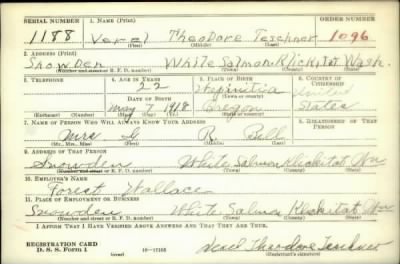 SERIAL NUMBER 1. NAME (Print) ORDER NUMBER
1188 Verel Theodore Teschner 1096
(First) (Middle) (Last)
2. ADDRESS (Print)
Snowden White Salmon Klickitat Wash.
(Number and street or R. F. D. number) (Town) (County) (State)
3. TELEPHONE 4. AGE IN YEARS 5. PLACE OF BIRTH 6. COUNTRY OF CITIZENSHIP
22 Wapinitia United
DATE OF BIRTH (Town or county)
May 7 1918 Oregon States
(Exchange) (Number) (Mo.) (Day) (Yr.) (State or country)
7. NAME OF PERSON WHO WILL ALWAYS KNOW YOUR ADDRESS 8. RELATIONSHIP OF THAT PERSON
Mrs G R Bell
(Mr., Mrs., Miss) (First) (Middle) (Last)
9. ADDRESS OF THAT PERSON
Snowden White Salmon Klickitat Wn
(Number and street or R. F. D. number) (Town) (County) (State)
10. EMPLOYER'S NAME
Forest Wallace
11. PLACE OF EMPLOYMENT OR BUSINESS
Snowden White Salmon Klickitat Wn
(Number and street or R. F. D. number) (Town) (County) (State)
I AFFIRM THAT I HAVE VERIFIED ABOVE ANSWERS AND THAT THEY ARE TRUE.
REGISTRATION CARD
D. S. S. Form 1 (over) 16—17105 Verel Theodore Teschner
(Registrant's signature)